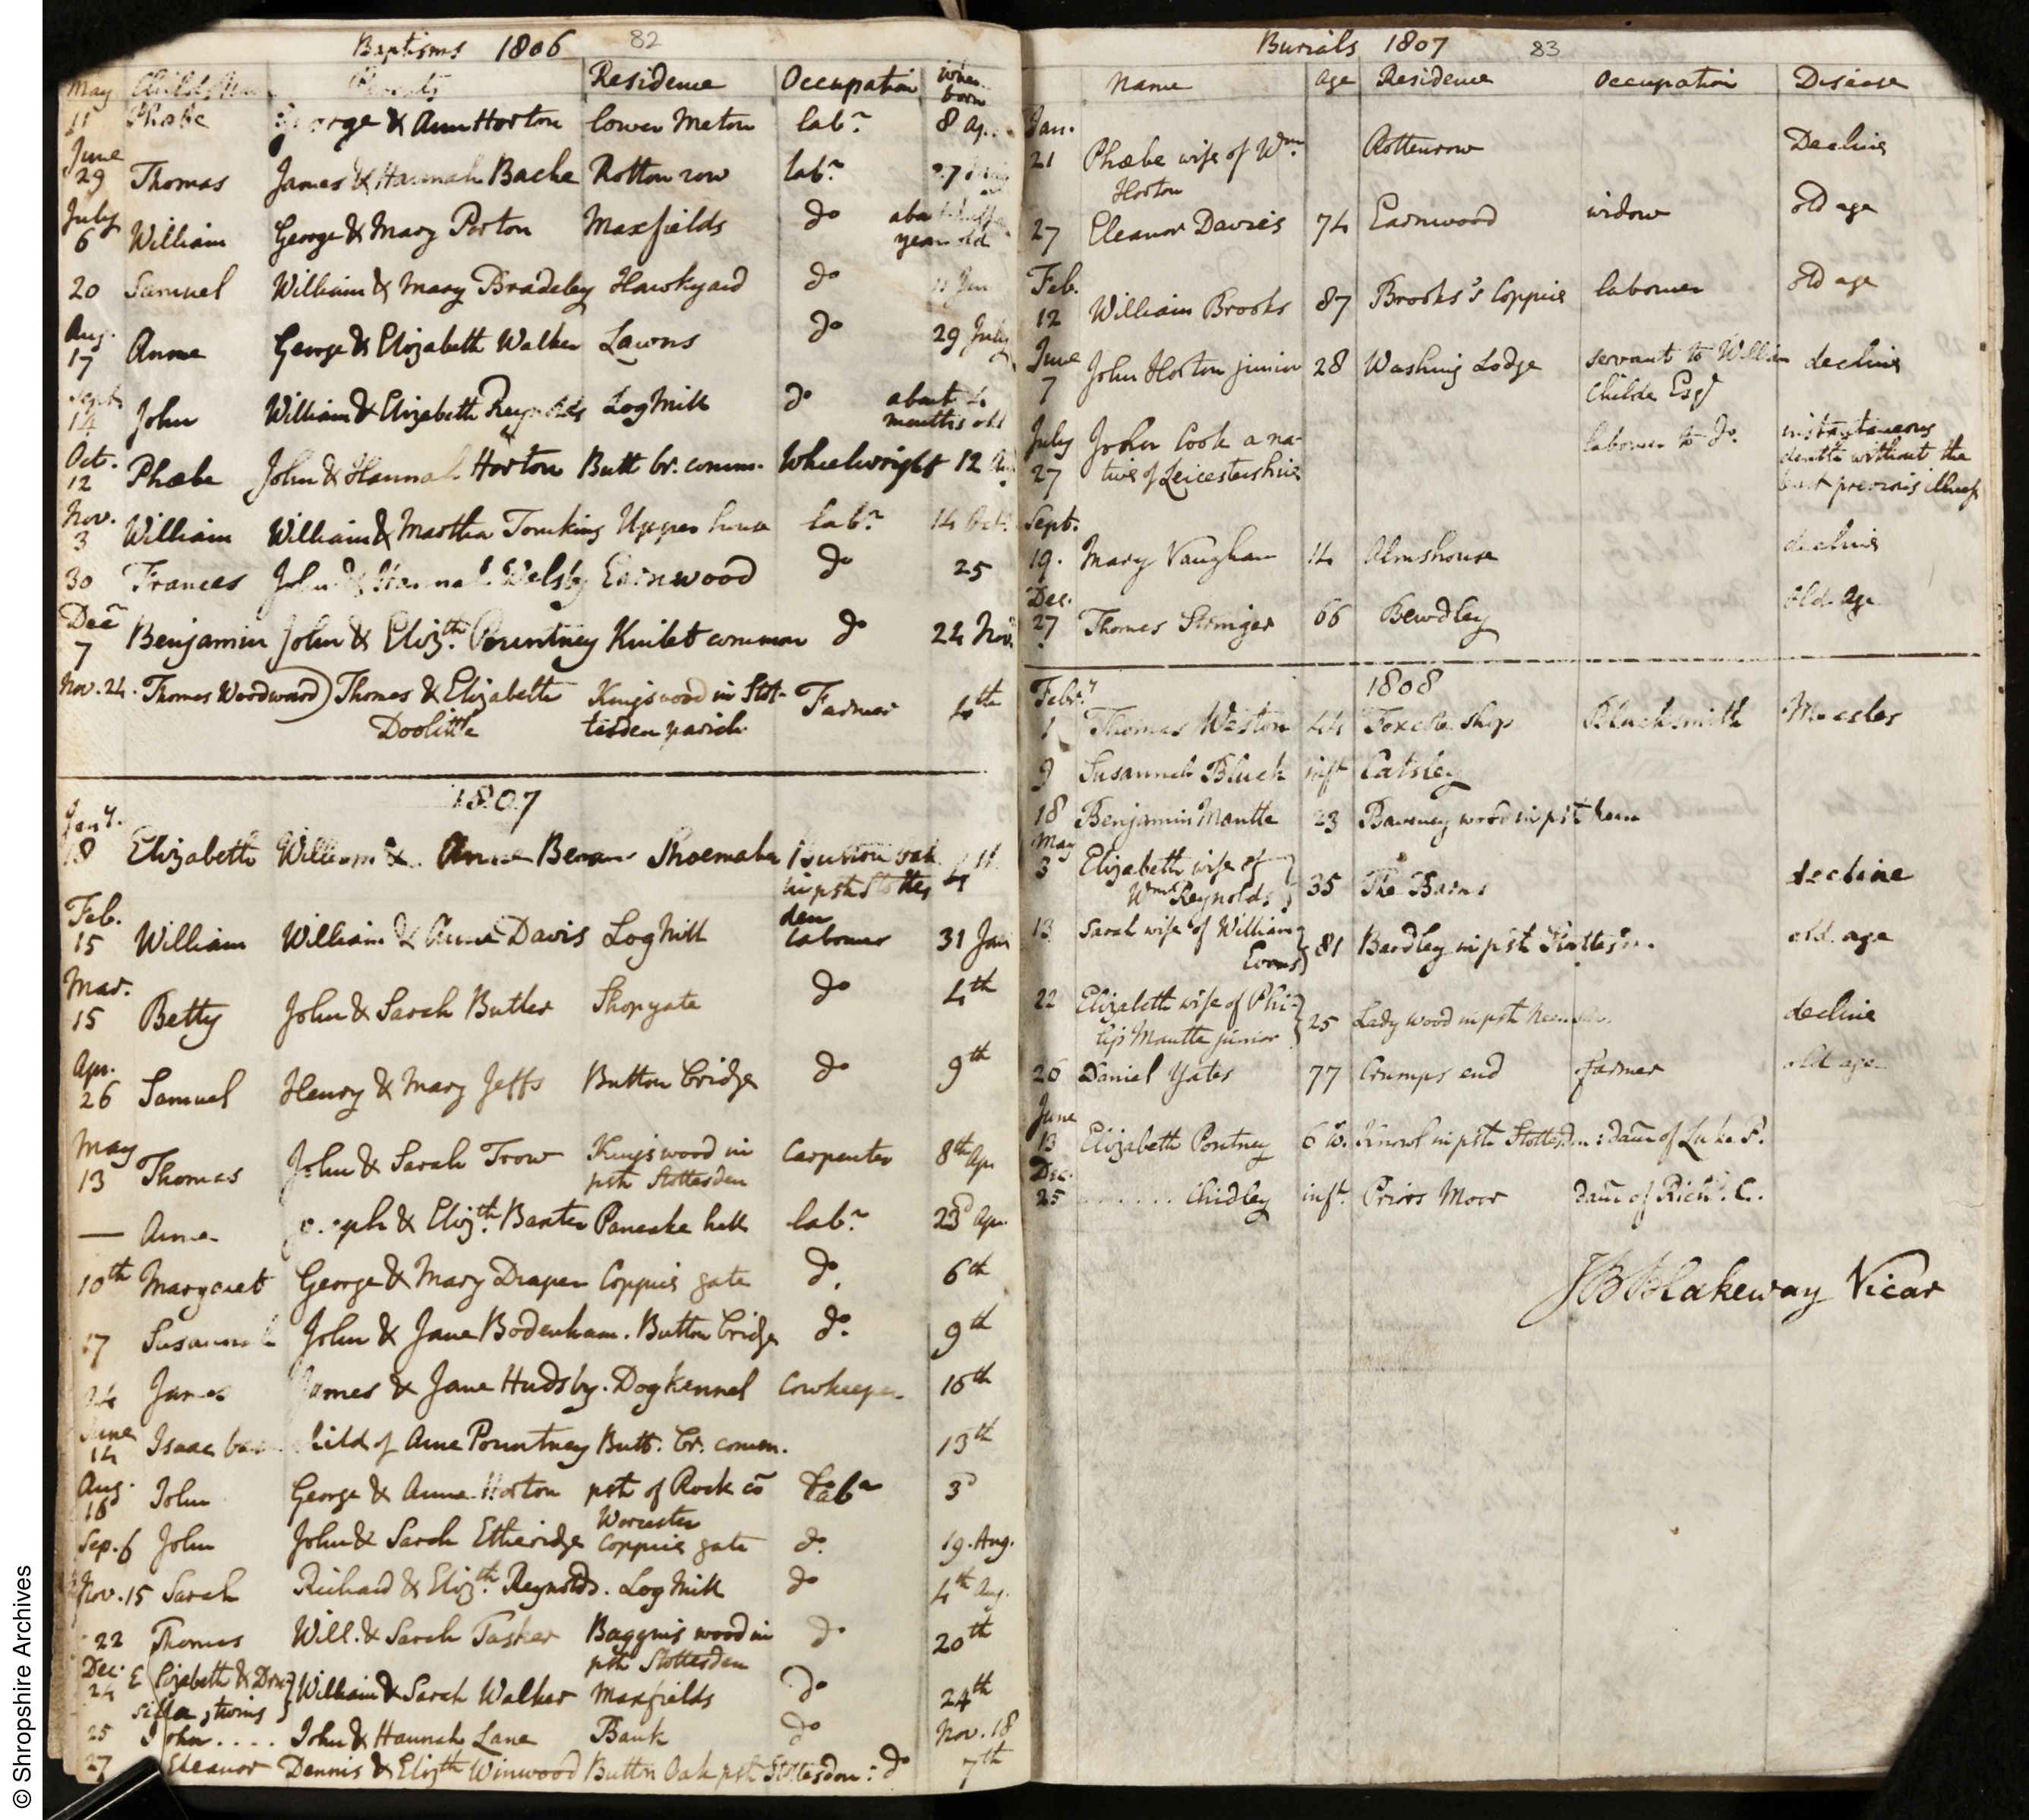 Baptisms 1806 82
May Parents Residence Occupation when born
11 Phœbe George & Ann Horton lower Meton labr. 8 Ap.
June
29 Thomas James & Hannah Bache Rotton row labr. 27
July
6 William George & Mary Porton Maxfields do
year old
20 Samuel William & Mary Bradeley Hawkyard do 11 Jun
Aug.
17 Anne George & Elizabeth Walker Lawns do 29 July
Sept.
14 John William & Elizabeth Reynolds Log Mill do about 4
months old
Oct.
12 Phœbe John & Hannah Horton Butt br. comm. Wheelwright 12
Nov.
3 William William & Martha Tomkins Upper house labr. 14 Oct.
30 Frances John & Hannah Welsby Earnwood do 25
Dec
7 Benjamin John & Elizth. Pountney Kinlet common do 22 Nov.
Nov. 24. Thomas Woodward) Thomas & Elizabeth Kingswood in Stot- Farmer 4th
Doolittle tesden parish
1807
Jany.
18 Elizabeth William & Anne Shoemaker Button oak
in psh Stottes
den
Feb.
15 William William & Anne Davis Log Mill labourer 31 Jan
Mar.
15 Betty John & Sarah Butler Shopgate do 4th
Apr.
26 Samuel Henry & Mary Jeffs Button bridge do 9th
May
13 Thomas John & Sarah Trow Kingswood in carpenter 8th Ap
psh Stottesden
— Anne Joseph & Elizth. Baxter Pancake hill labr. 23d Ap.
10th Margaret George & Mary Draper Coppice gate do. 6th
17 Susannah John & Jane Bodenham. Button bridge do. 9th
24 James James & Jane Hudsby. Dogkennel Cowkeeper 16th
June
14 Isaac base child of Anne Pountney Butt. br. comm. 13th
Aug.
16 John George & Anne Horton psh of Rock co Labr 3d
Worcester
Sep. 6 John John & Sarah Etheridge Coppice gate do. 19. Aug.
Nov. 15 Sarah Richard & Elizth. Reynolds. Log Mill do 4th Aug.
22 Thomas Will. & Sarah Tasker Baggins wood in do 20th
psh Stottesden
Dec.
24 Elizabeth & Dru-} William & Sarah Walker Maxfields do 24th
silla, twins}
25 John .... John & Hannah Lane Bank do Nov. 18
27 Eleanor Dennis & Elizth Winwood Button Oak psh Stottesdon: do 7th
Burials 1807 83
Name Age Residence Occupation Disease
Jan.
21 Phœbe wife of Wm. Rottenrow Decline
Horton
27 Eleanor Davies 74 Earnwood widow old age
Feb.
12 William Brooks 87 Brooks's Coppice labourer old age
June
7 John Horton junior 28 Washing Lodge servant to William decline
Childe Esqr
July John Cook a na- labourer to Do. instantaneous
27 tive of Leicestershire death without the
least previous illness
Sept.
19. Mary Vaughan 14 Almshouse decline
Dec.
27 Thomas Stringer 66 Bewdley Old Age
1808
Febry
1 Thomas Weston 44 Foxcote Shop Blacksmith Measles
9 Susannah Bluck inft Catsley
18 Benjamin Mantle 23 Baveney wood in psh
May
3 Elizabeth wife of } 35 The Barns decline
Wm Reynolds }
13 Sarah wife of William} 81 Bardley in psh old age
Evans}
22 Elizabeth wife of Phi-} 25 Lady wood in psh decline
lip Mantle junior}
26 Daniel Yates 77 Crumps end farmer old age
June
13 Elizabeth Pontney 6 W. Knowl in psh Stottesdn: daur of Luke P.
Dec.
25 ....... Chidley inft. Priors Moor daur of Richd. C.
J B Blakeway Vicar
© Shropshire Archives